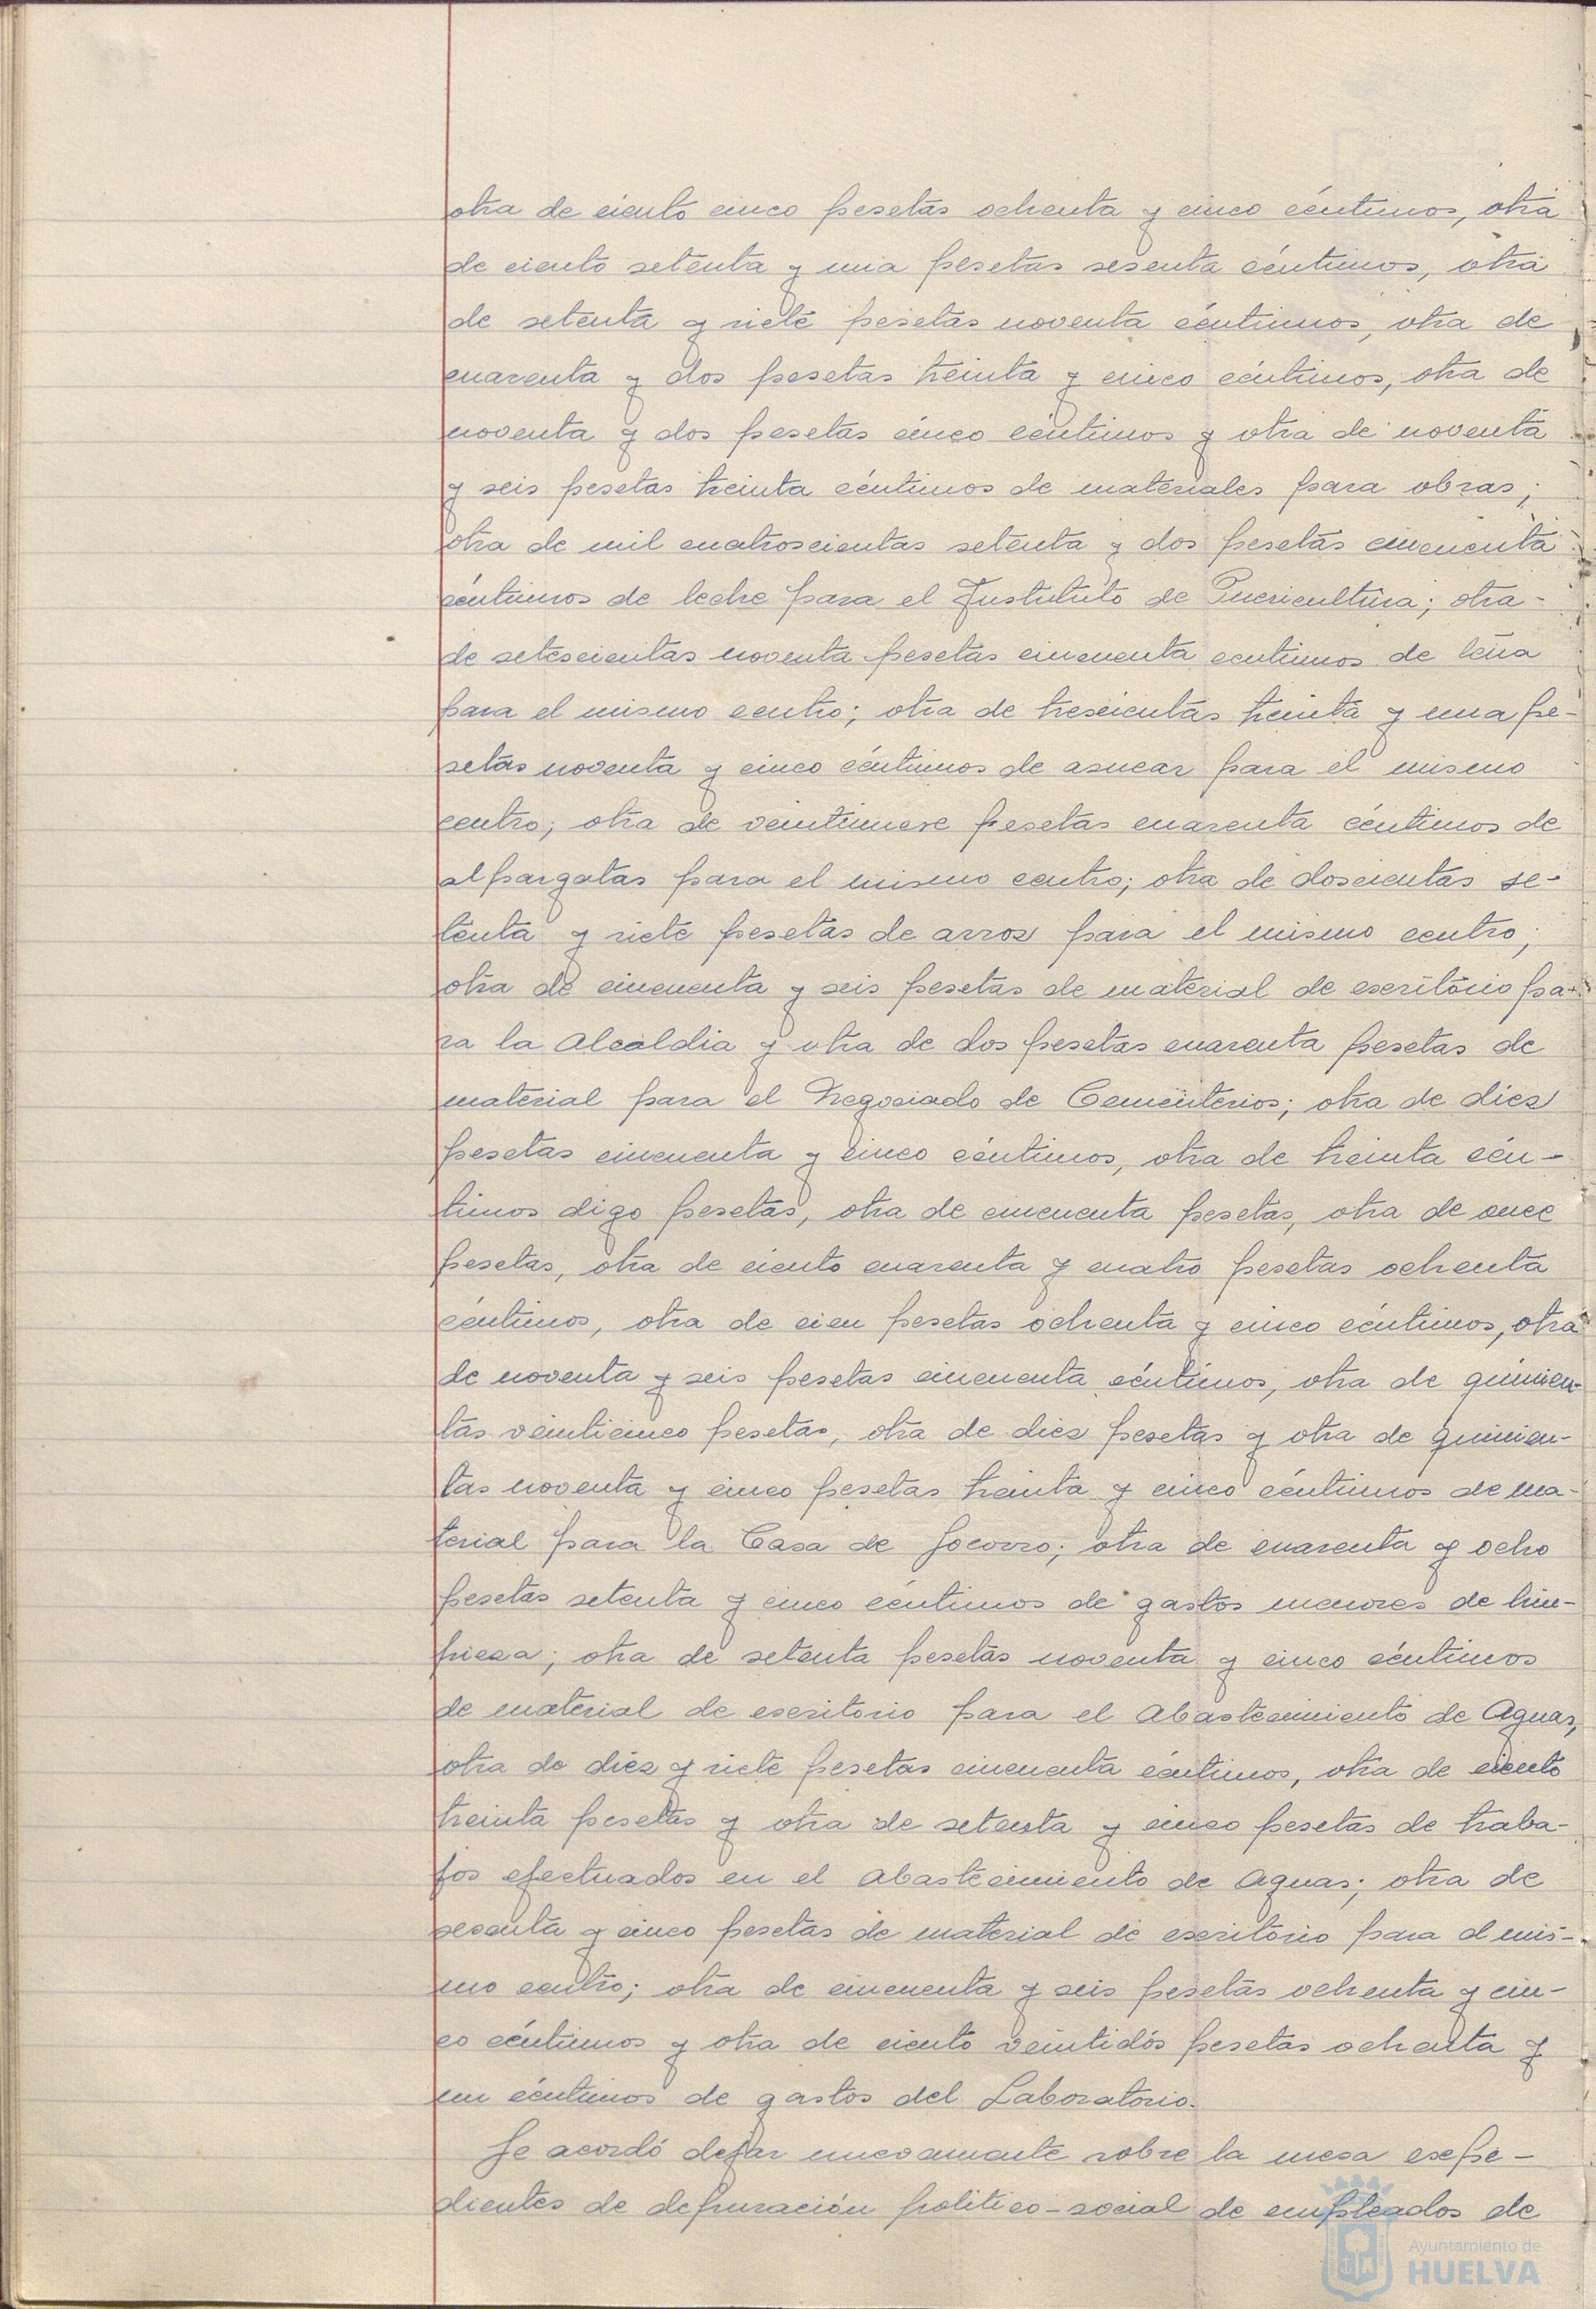 otra de ciento cinco pesetas ochenta y cinco céntimos, otra
de ciento setenta y una pesetas sesenta céntimos, otra
de setenta y siete pesetas noventa céntimos, otra de
cuarenta y dos pesetas treinta y cinco céntimos, otra de
noventa y dos pesetas cinco céntimos y otra de noventa
y seis pesetas treinta céntimos de materiales para obras;
otra de mil cuatroscientas setenta y dos pesetas cincuenta
céntimos de leche para el Instituto de Puericultura; otra
de setescientas noventa pesetas cincuenta centimos de leña
para el mismo centro; otra de trescientas treinta y una pe-
setas noventa y cinco céntimos de asucar para el mismo
centro; otra de veintinueve pesetas cuarenta céntimos de
alpargatas para el mismo centro; otra de doscientas se-
tenta y siete pesetas de arroz para el mismo centro;
otra de cincuenta y seis pesetas de material de escritorio pa-
ra la Alcaldia y otra de dos pesetas cuarenta pesetas de
material para el Negociado de Cementerios; otra de diez
pesetas cincuenta y cinco céntimos, otra de treinta cén-
timos digo pesetas, otra de cincuenta pesetas, otra de once
pesetas, otra de ciento cuarenta y cuatro pesetas ochenta
céntimos, otra de cien pesetas ochenta y cinco céntimos, otra
de noventa y seis pesetas cincuenta céntimos, otra de quinien-
tas veinticinco pesetas, otra de diez pesetas y otra de quinien-
tas noventa y cinco pesetas treinta y cinco céntimos de ma-
terial para la Casa de Socorro; otra de cuarenta y ocho
pesetas setenta y cinco centimos de gastos menores de lim-
pieza; otra de setenta pesetas noventa y cinco céntimos
de material de escritorio para el Abastecimiento de Aguas,
otra de diez y siete pesetas cincuenta céntimos, otra de ciento
treinta pesetas y otra de setenta y cinco pesetas de traba-
jos efectuados en el Abastecimiento de Aguas; otra de
sesenta y cinco pesetas de material de escritorio para el mis-
mo centro; otra de cincuenta y seis pesetas ochenta y cin-
co céntimos y otra de ciento veintidós pesetas ochenta y
un céntimos de gastos del Laboratorio.
Se acordó dejar nuevamente sobre la mesa expe-
dientes de depuración politico-social de empleados de
Ayuntamiento de
HUELVA